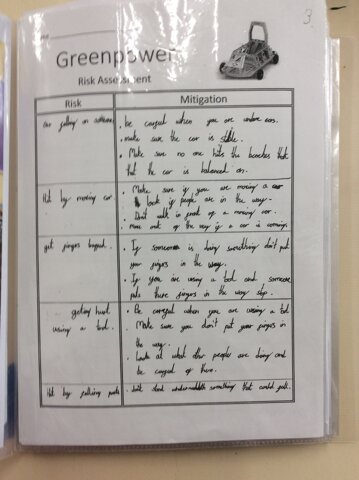 3
Greenpower
Risk Assessment
Risk
Mitigation
car falling on someone
be careful when you are under cars.
make sure the car is stable.
Make sure no one hits the benches that
that the car is balanced on.
Hit by moving car
Make sure if you are moving a car
look if people are in the way.
Don't walk in front of a moving car.
Move out of the way if a car is coming.
get fingers
If someone is doing something don't put
your fingers in the way.
If you are using a tool and someone
puts there fingers in the way stop.
getting hurt
using a tool.
Be careful when you are using a tool
Make sure you don't put your fingers in
the way.
Look at what other people are doing and
be careful of them.
Hit by falling parts
don't stand underneath something that could fall.